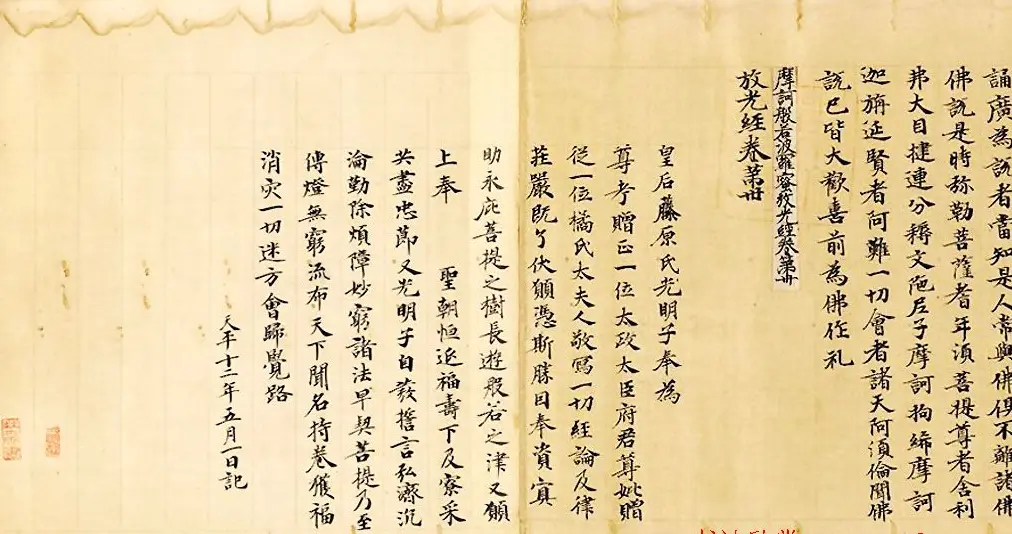 誦廣為説者當知是人常與佛俱不離諸佛
佛説是時弥勒菩薩耆年須菩提尊者舍利
弗大目揵連分耨文陁尼子摩訶拘絺摩訶
迦旃延賢者阿難一切會者諸天阿須倫聞佛
説已皆大歡喜前為佛作礼
摩訶般若波羅蜜放光經卷第卅
放光經卷第卅
皇后藤原氏光明子奉為
尊考贈正一位太政太臣府君尊妣贈
従一位橘氏太夫人敬寫一切經論及律
荘嚴既了伏願憑斯勝因奉資冥
助永庇菩提之樹長遊般若之津又願
上奉 聖朝恒延福壽下及寮采
共盡忠節又光明子自發擔言弘濟沉
淪勤除煩障妙窮諸法早契菩提乃至
傳燈無窮流布天下聞名持卷獲福
消灾一切迷方會歸覺路
天平十二年五月一日記